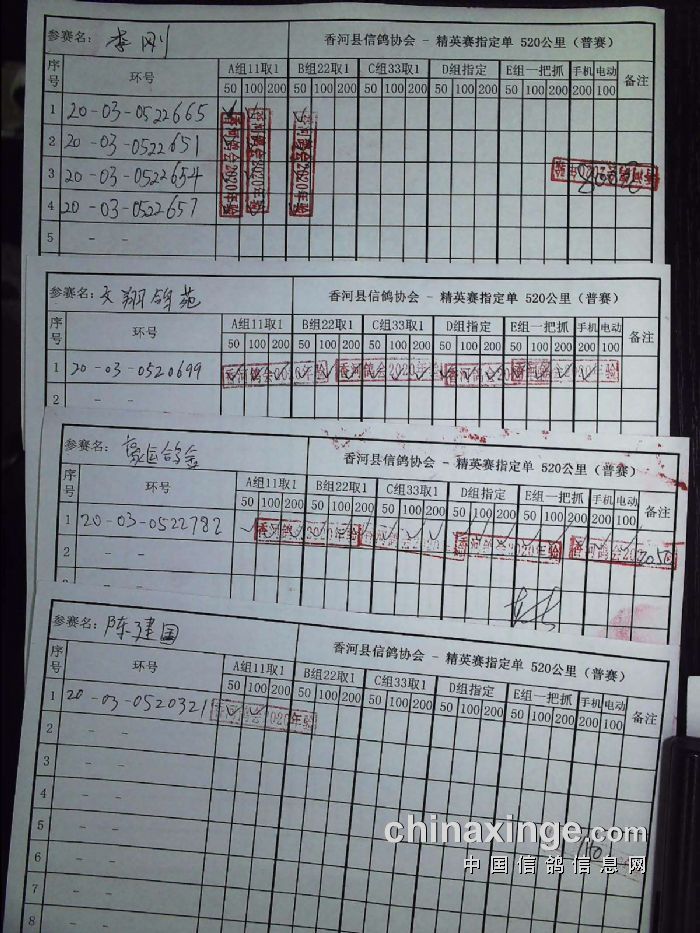 参赛名： 李刚 香河县信鸽协会 - 精英赛指定单 520公里（普赛）
序号 环号 A组11取1 B组22取1 C组33取1 D组指定 E组一把抓 手机 电动 备注
50 100 200 50 100 200 50 100 200 50 100 200 50 100 200 200 100
1 20-03-0522665
2 20-03-0522651
3 20-03-0522654
4 20-03-0522657
5 - -
香河鸽会2020年验
香河鸽会2020年验
香河鸽会2020年验
参赛名： 文翔鸽苑 香河县信鸽协会 - 精英赛指定单 520公里（普赛）
序号 环号 A组11取1 B组22取1 C组33取1 D组指定 E组一把抓 手机 电动 备注
50 100 200 50 100 200 50 100 200 50 100 200 50 100 200 200 100
1 20-03-0520699 香河鸽会2020年验 香河鸽会2020年
2 - -
参赛名： 香河县信鸽协会 - 精英赛指定单 520公里（普赛）
序号 环号 A组11取1 B组22取1 C组33取1 D组指定 E组一把抓 手机 电动 备注
50 100 200 50 100 200 50 100 200 50 100 200 50 100 200 200 100
1 20-03-0522782
2 - - 2050
- -
参赛名： 陈建国 香河县信鸽协会 - 精英赛指定单 520公里（普赛）
序号 环号 A组11取1 B组22取1 C组33取1 D组指定 E组一把抓 手机 电动 备注
50 100 200 50 100 200 50 100 200 50 100 200 50 100 200 200 100
1 20-03-0520321 2020年验
2 - -
3 - -
4 - -
5 - -
6 - -
7 - -
8 - -
chinaxinge.com
中国信鸽信息网